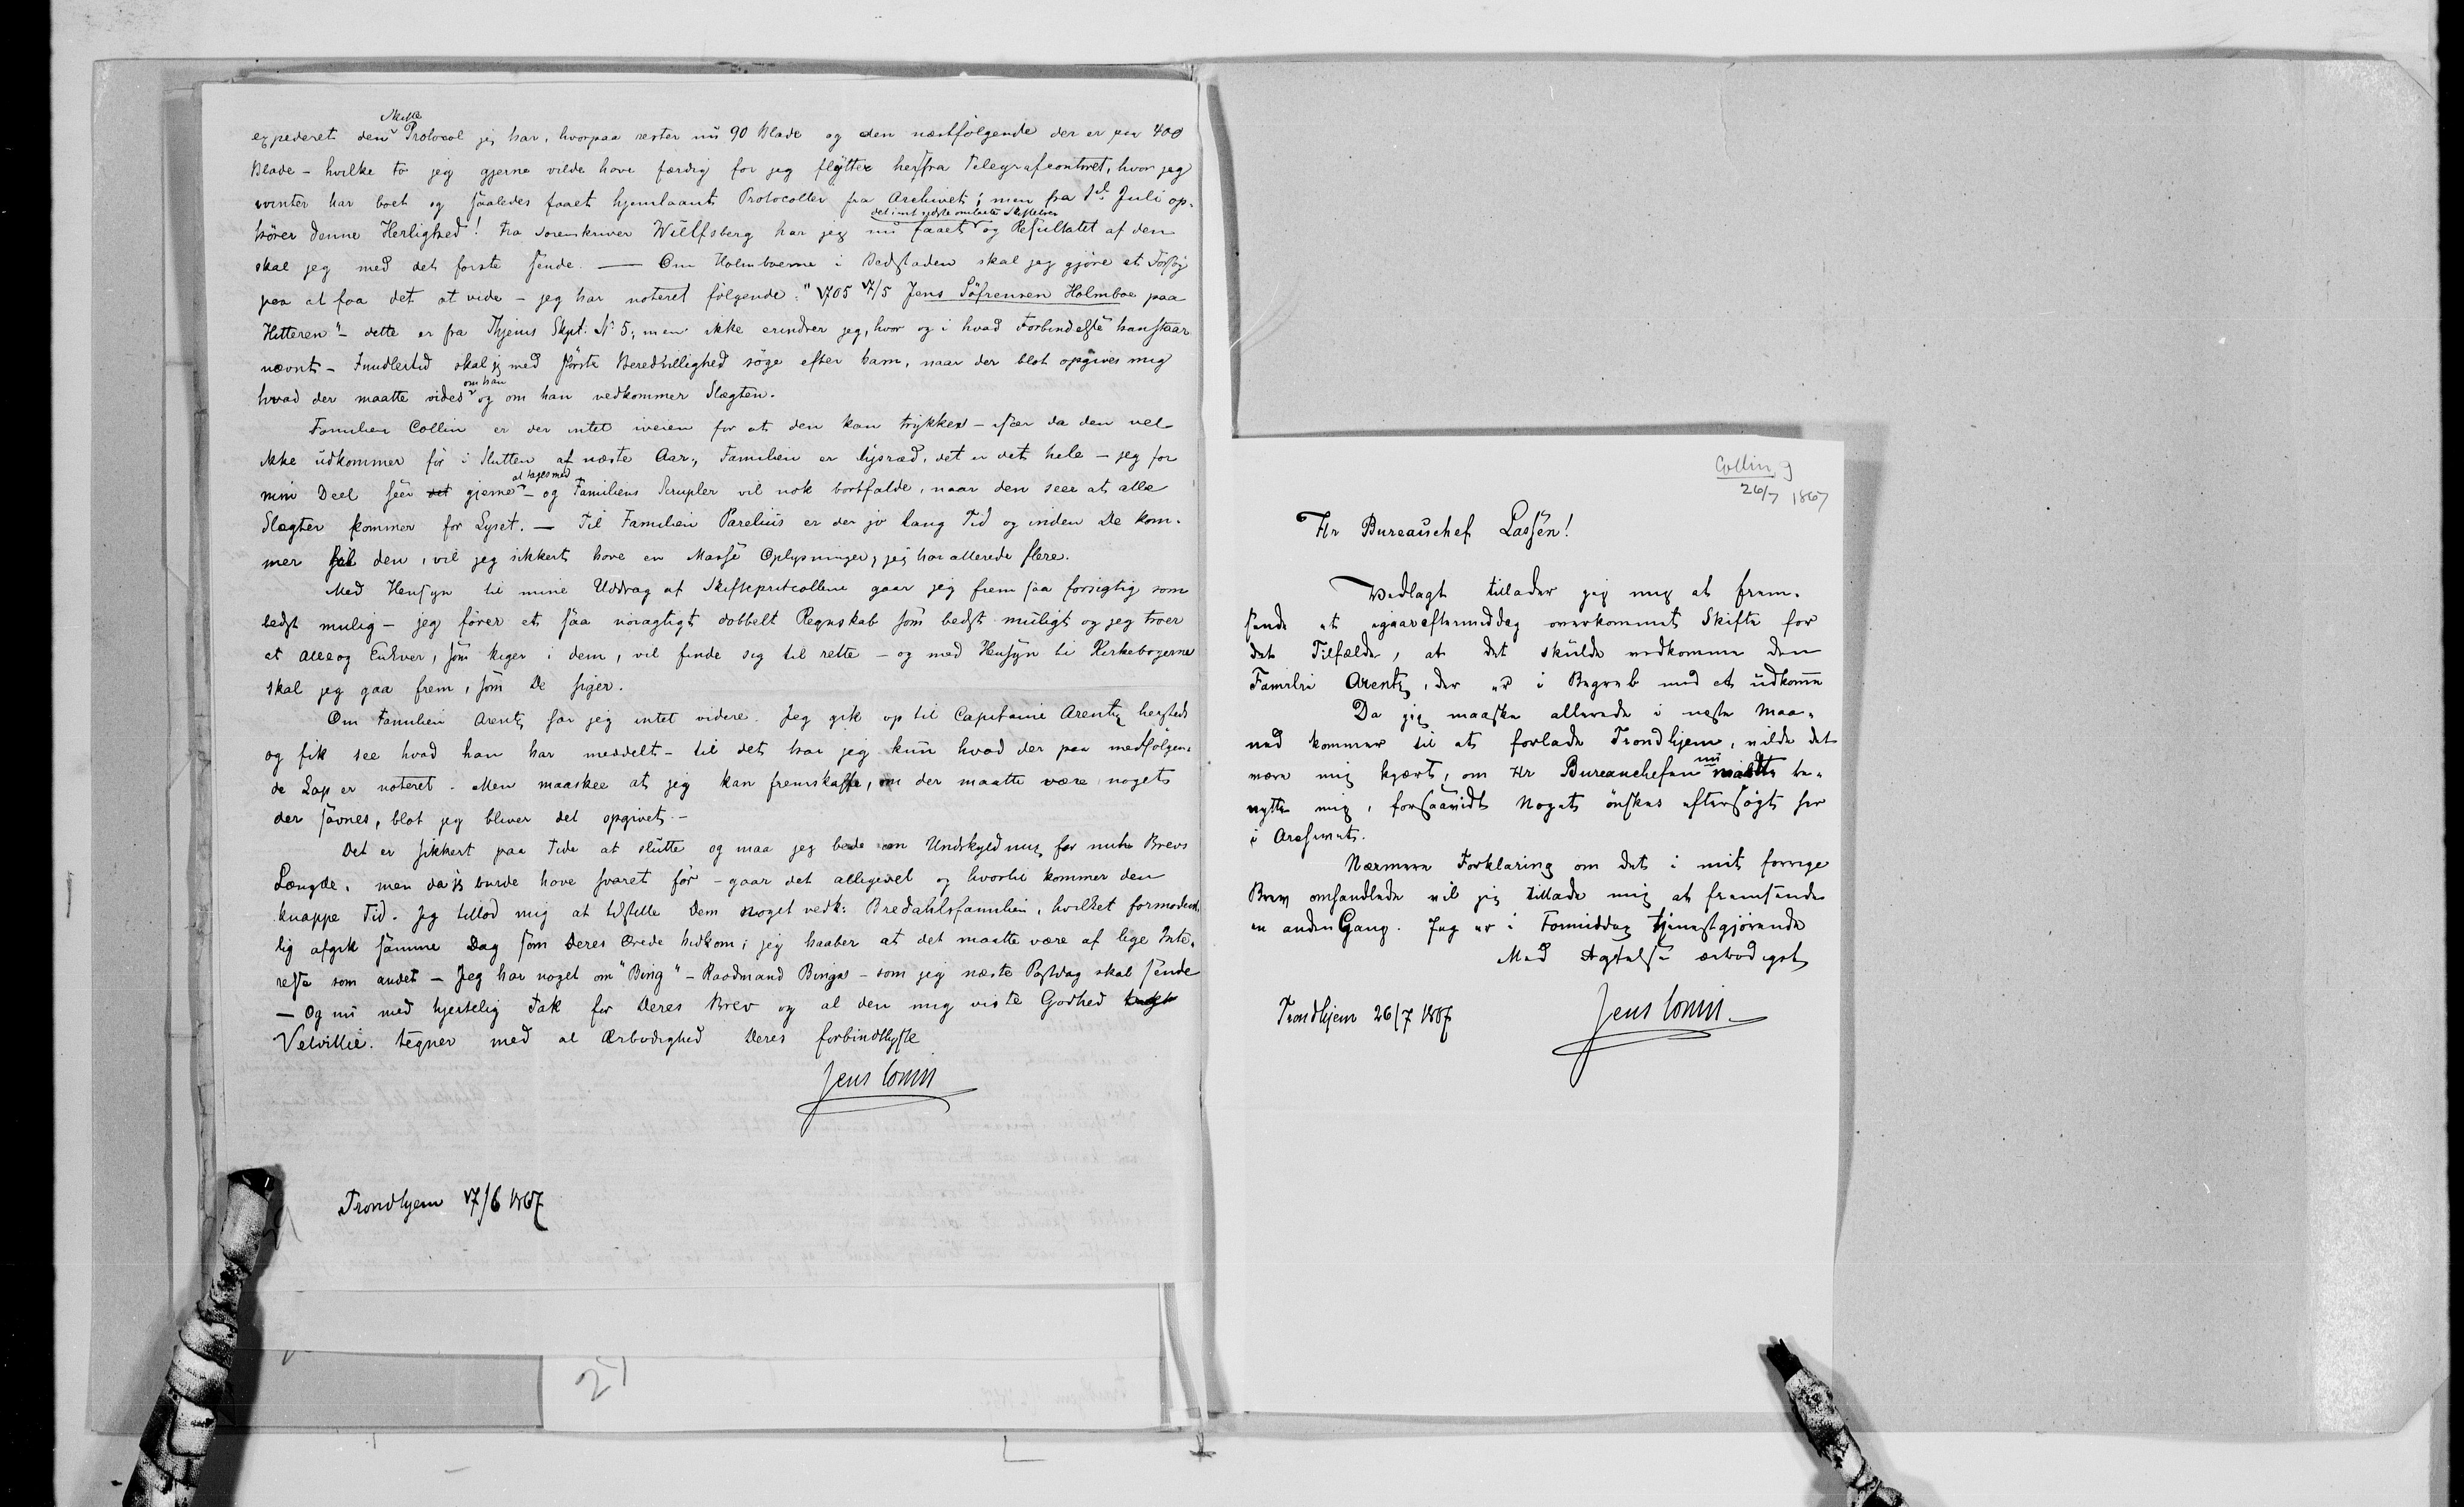 Skifte
expederet den Protocol jeg har, hvorpaa rester nu 90 Blade og den næstfølgende der er paa 400
Blade – hvilke to jeg gjerne vilde have færdig før jeg flytter herfra Telegrafcontoret, hvor jeg
ivinter har boet og saaledes faaet hjemlaant Protocoller fra Archivet; men fra 1ste Juli op-
hører denne Herlighed! Fra Sorenskriver Wülfsberg har jeg nu faaet og Resultatet af den
skal jeg med det første sende. — Om Holmboerne i Vedstaden skal jeg gjøre et Forsøg
paa at faa det at vide – jeg har noteret følgende: "1705 17/5 Jens Söfrensen Holmboe paa
Hitteren" – dette er fra Thjems Skpt: N 5; men ikke erindrer jeg, hvor og i hvad Forbindelse han staar
nævnt – Imidlertid skal jeg med største Beredvillighed søge efter ham, naar der blot opgives mig
om han
hvad der maatte vides og om han vedkommer Slægten.
Familien Collin er der intet iveien for at den kan trykkes – især da den vel
ikke udkommer før i Slutten af næste Aar; Familien er lysræd, det er det hele – jeg for
at tages med
min Deel seer det gjerne – og Familiens Scrupler vil nok bortfalde, naar den seer at alle
Slægter kommer for Lyset. — Til Familien Parelius er der jo lang Tid og inden De kom-
mer til den, vil jeg sikkert have en Masse Oplysninger; jeg har allerede flere.
Med Hensyn til mine Uddrag af Skifteprotcollerne gaar jeg frem saa forsigtig som
bedst mulig – jeg fører et saa nøiagtigt dobbelt Regnskab som bedst muligt og jeg troer
at alle og Enhver, som kiger i dem, vil finde sig til rette – og med Hensyn til Kirkebøgerne
skal jeg gaa frem, som De siger.
Om Familien Arentz har jeg intet videre. Jeg gik op til Capitaine Arentz hersteds
og fik see hvad han har meddelt – til det har jeg kun hvad der paa medfølgen-
de Lap er noteret. Men maaskee at jeg kan fremskaffe, om der maatte være noget
der savnes, blot jeg bliver det opgivet. –
Det er sikkert paa Tide at slutte og maa jeg bede om Undskyldning for mit Brevs
Længde, men da jeg burde have svaret før – gaar det alligevel og hvortil kommer den
knappe Tid. Jeg tillod mig at tilstille Dem noget vedk: Bredahlsfamilien, hvilket formodent-
lig afgik samme Dag som Deres Ærede hidkom; jeg haaber at det maatte være af lige Inte-
resse som andet – Jeg har noget om "Bing" – Raadmand Bings – som jeg næste Postdag skal sende
– Og nu med hjertelig Tak for Deres Brev og al den mig viste Godhed
Velvillie. tegner med al Ærbødighed Deres forbindtligste
Jens Collin
Trondhjem 17/6 1867
27
Collin, J
26/7 1867
Hr Bureauchef Lassen!
Vedlagt tillader jeg mig at frem-
sende et igaareftermiddag overkommet Skifte for
det Tilfælde, at det skulde vedkomme den
Familie Arentz, der er i Begreb med at udkomme
Da jeg maaske allerede i næste Maa-
ned kommer til at forlade Trondhjem, vilde det
nu
være mig kjært, om Hr Bureauchefen maatte be-
nytte mig, forsaavidt Noget ønskes eftersøgt her
i Archivet.
Nærmere Forklaring om det i mit forrige
Brev omhandlede vil jeg tillade mig at fremsende
en anden Gang. Jeg er i Formiddag tjenestgjørende
Med Agtelse ærbødigst
Trondhjem 26/7 1867
Jens Collin